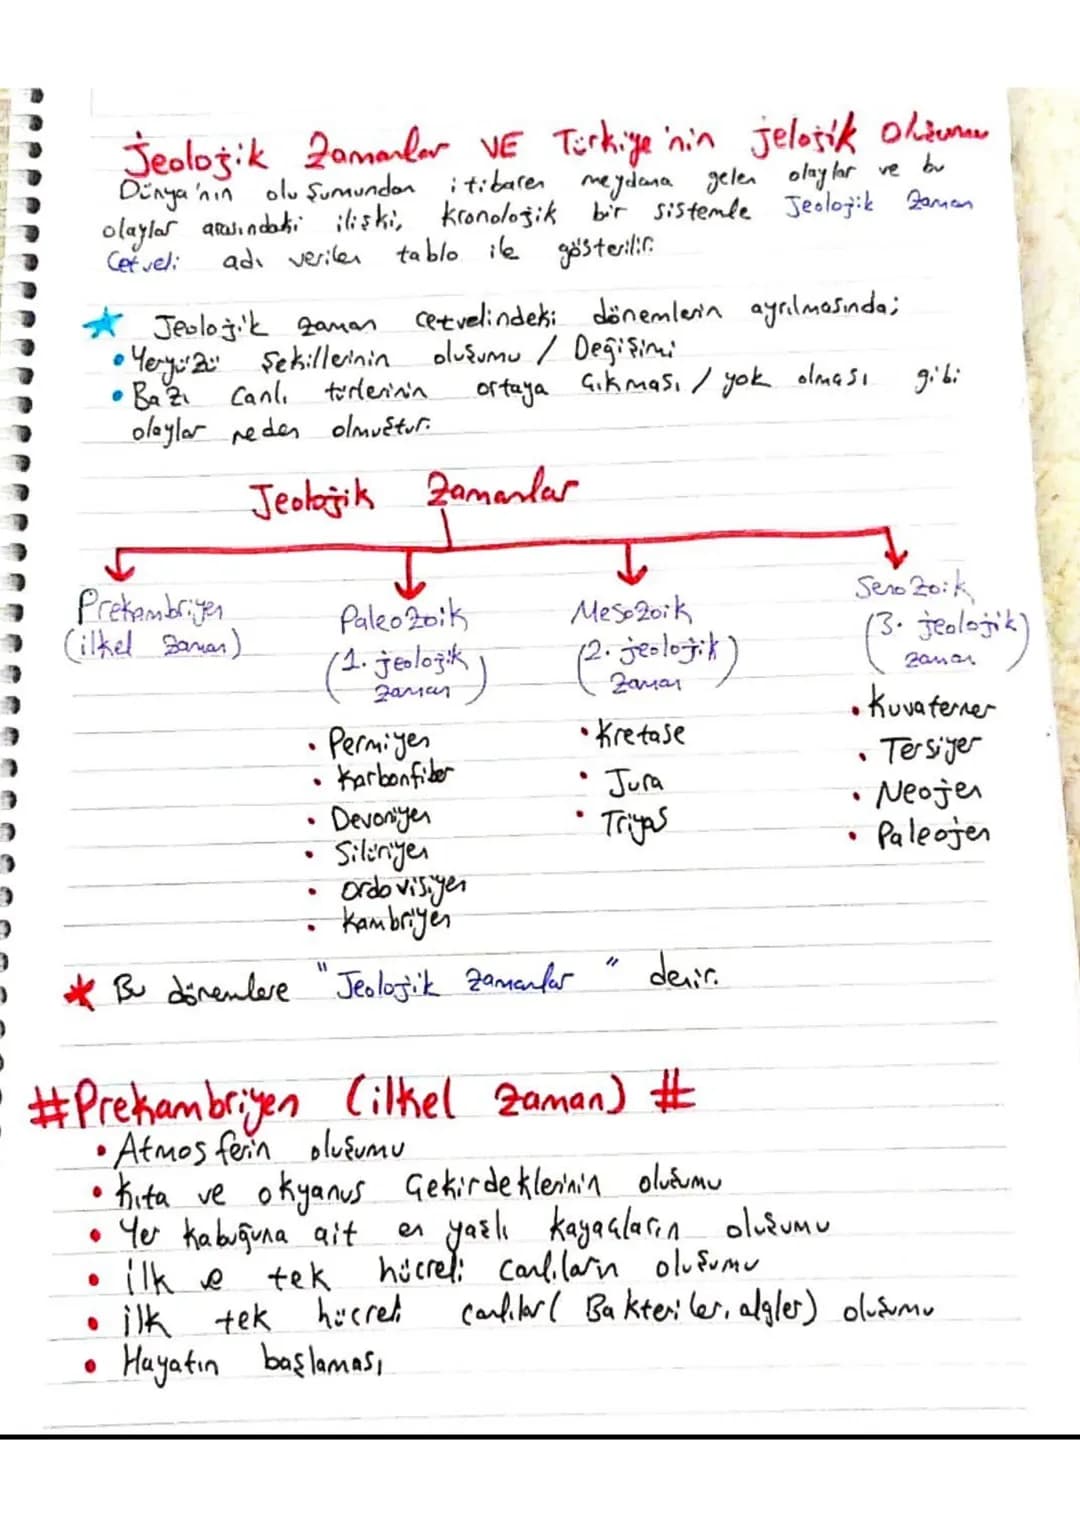 Jeolojik Zamanlar VE Türkiye'nin jelojik Oluşumu
Dünya'nın oluşumundan itibaren meydana gelen olaylar ve bu
olaylar arasındaki ilişki, kronolojik bir sistemle Jeolojik Zaman
Cetveli adı verilen tablo ile gösterilir.
Jeolojik zaman cetvelindeki dönemlerin ayrılmasında;
• Yeryüzü Şekillerinin oluşumu / Değişimi
• Bazı Canlı türlerinin ortaya Çıkması / yok olması gibi
olaylar neden olmuştur.
Jeolojik Zamanlar
Prekambriyen
(ilkel zaman)
Paleozoik
(1. jeolojik
zaman)
• Permiyen
• Karbonfiber
• Devoniyen
• Silüriyen
• Ordovisiyen
• Kambriyen
Mesozoik
(2. jeolojik)
zaman
• Kretase
• Jura
• Triyas
Senozoik
(3. jeolojik)
zaman
• Kuvaterner
• Tersiyer
• Neojen
• Paleojen
Bu dönemlere "Jeolojik zamanlar" denir.
#Prekambriyen (ilkel zaman) #
• Atmosferin oluşumu
• Kıta ve okyanus Çekirdeklerinin oluşumu
• Yer kabuğuna ait en yaşlı kayaçların oluşumu
• ilk e tek hücreli canlıların oluşumu
• ilk tek hücreli canlılar( Bakteriler, algler) oluşumu
• Hayatın başlaması